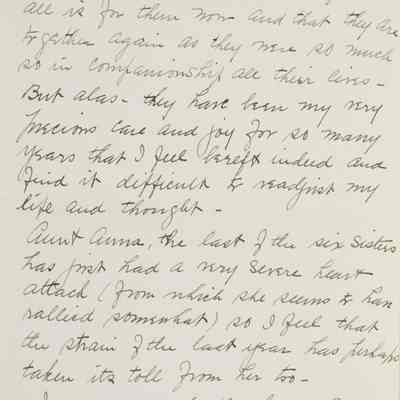 all is for them now and that they are
together again as they were so much
so in companionship all their lives -
But alas - they have been my very
precious care and joy for so many
years that I feel bereft indeed and
find it difficult to readjust my
life and thought -
Aunt Anna, the last of the six sisters
has just had a very severe heart
attack (from which she seems to have
rallied somewhat) so I feel that
the strain of the last year has perhaps
taken its toll from her too -